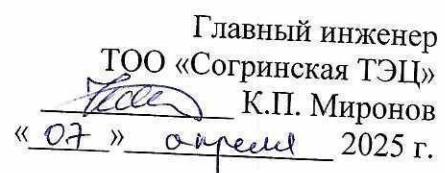 Главный инженер
ТОО «Согринская ТЭЦ»
К.П. Миронов
«07» апреля 2025 г.